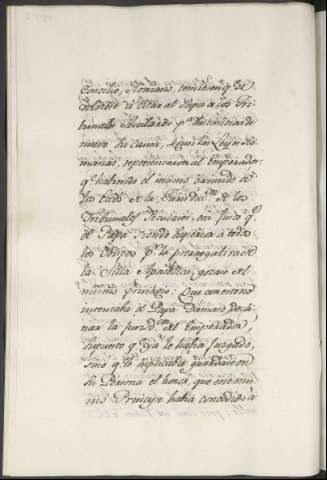 Concilio, Romano, temieron qe. se
volviese à citar al Papa a los Tri-
bunales Seculares pa. tratar de
nuevo su causa, segun las Leyes Ro-
manas, representaron al Emperador
qe. habiendo el mismo eximido de
los casos de la Jurisdicon. de los
Tribunales Seculares, era justo qe.
el Papa siendo superior à todos
los Obispos pr. la prerrogativa de
la Silla Apostolica, gozase del
mismo privilegio: Que con esto no
intentaba el Papa Damaso decli-
nar la jurisdon. del Emperador,
supuesto qe. ya le habia juzgado,
sino qe. le suplicaba guardase en
su Persona el honor, que en el mis-
mo Principe habia concedido à